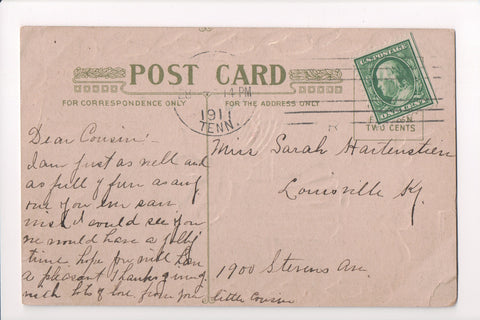 POST CARD
FOR CORRESPONDENCE ONLY
FOR THE ADDRESS ONLY
4 PM
1911
TENN.
U.S. POSTAGE
ONE CENT
TWO CENTS
Dear Cousin:-
I am just as well and
as full of fun as any
one you ever saw
wish I could see you
we would have a jolly
time hope you will have
a pleasant Thanksgiving
with lots of love from your
little Cousin
Miss Sarah Hartenstien
Louisville Ky.
1900 Stevens Ave.